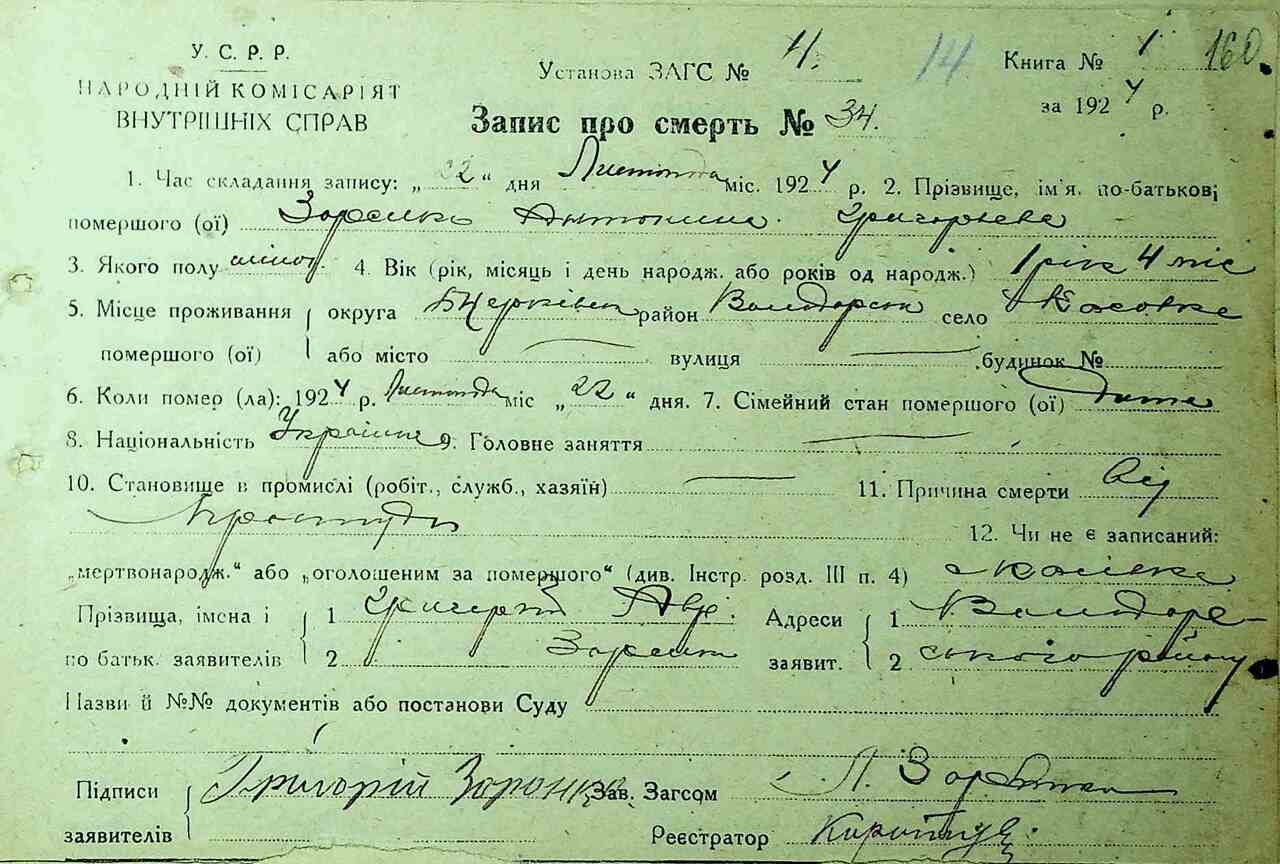 У. С. Р. Р.
НАРОДНІЙ КОМІСАРІЯТ
ВНУТРІШНІХ СПРАВ
Установа ЗАГС № 4.
14
Книга № 1
160
за 1924 р.
Запис про смерть № 34.
1. Час складання запису: „22“ дня Листопада міс. 1924 р. 2. Прізвище, ім'я, по-батькові
помершого (ої) Антонина Григорьева
3. Якого полу жіноч. 4. Вік (рік, місяць і день народж. або років од народж.) 1 рік 4 міс
5. Місце проживання округа Б Церківськ район Володарськ село
помершого (ої) або місто вулиця будинок №
6. Коли помер (ла): 1924 р. Листопада міс „22“ дня. 7. Сімейний стан помершого (ої) Дитина
8. Національність Українка 9. Головне заняття
10. Становище в промислі (робіт., служб., хазяїн) 11. Причина смерти від
простуди
12. Чи не є записаний:
„мертвонародж.“ або „оголошеним за помершого“ (див. Інстр. розд. III п. 4)
Прізвища, імена і 1 Григорій Адреси 1 Володар-
по батьк. заявителів 2 заявит. 2 ського району
Назви й №№ документів або постанови Суду
Підписи Григорій Зоренко Зав. Загсом
заявителів Реєстратор